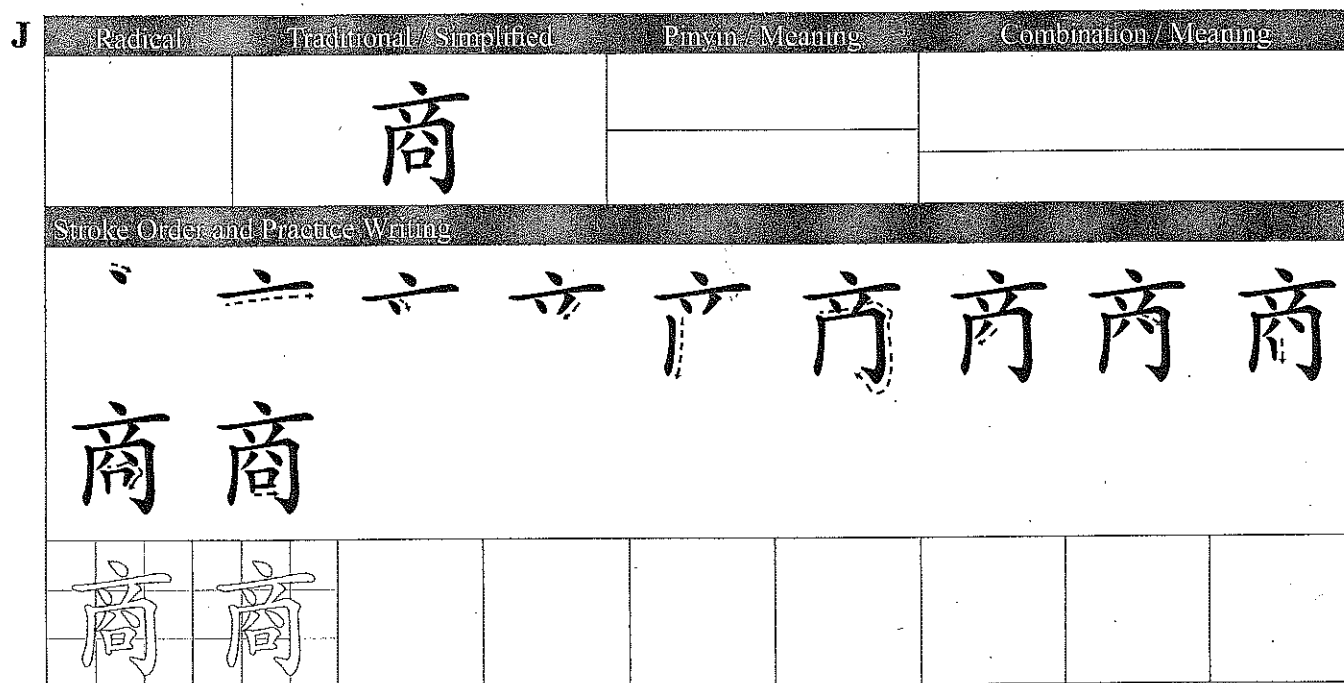 J
Radical Traditional / Simplified Pinyin / Meaning Combination / Meaning
商
Stroke Order and Practice Writing
商
商 商